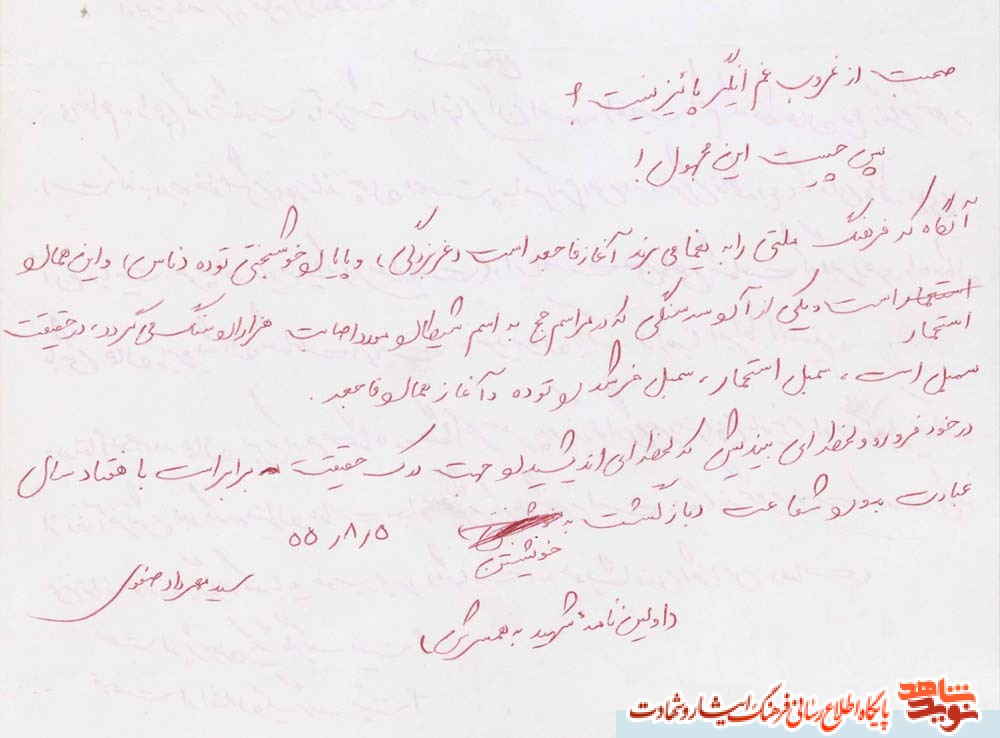 صحبت از غروب غم انگیز پائیز نیست !
پس چیست این مجهول !
آنگاه که فرهنگ ملتی را به یغما می برند آغاز فاجعه است (غربزدگی) و پایان خوشبختی توده (ناس) و این همان
استحمار است و یکی از آن سه سنگی که در مراسم حج به اسم شیطان مورد اصابت هزاران سنگ می گردد، در حقیقت
استحمار
سمبل است، سمبل استحمار، سمبل خر شدن توده و آغاز همان فاجعه.
در خود فرو رو و لحظه ای بیندیش که لحظه ای اندیشیدن جهت درک حقیقت برابر است با هفتاد سال
عبادت بدون شناخت و بازگشت به
خویشتن
۵ر۸ر۵۵
سید مهرداد صفوی
(اولین نامهٔ شهید به همسرش)
نوید شاهد
پایگاه اطلاع رسانی فرهنگ ایثار و شهادت